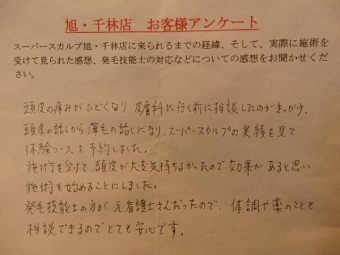 旭・千林店　お客様アンケート
スーパースカルプ旭・千林店に来られるまでの経緯、そして、実際に施術を
受けて見られた感想、発毛技能士の対応などについての感想をお聞かせくだ
さい。
頭皮の痛みがひどくなり、皮膚科に行く前に相談したのがきっかけ。
頭皮の話しから薄毛の話しになり、スーパースカルプの実績を見て
体験コースを予約しました。
施術を受けて、頭皮が大変気持ちよかったので効果があると思い
施術を始めることにしました。
発毛技能士の方が、元看護士さんだったので、体調や薬のことも
相談できるのでとても安心です。